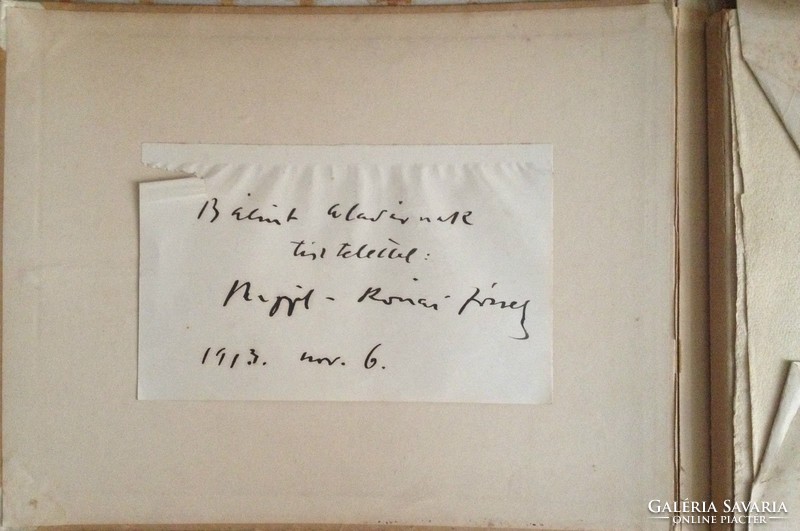 Bálint Aladárnak
tisztelettel:
Rippl-Rónai József
1913. nov. 6.
GALÉRIA SAVARIA
ONLINE PIACTÉR